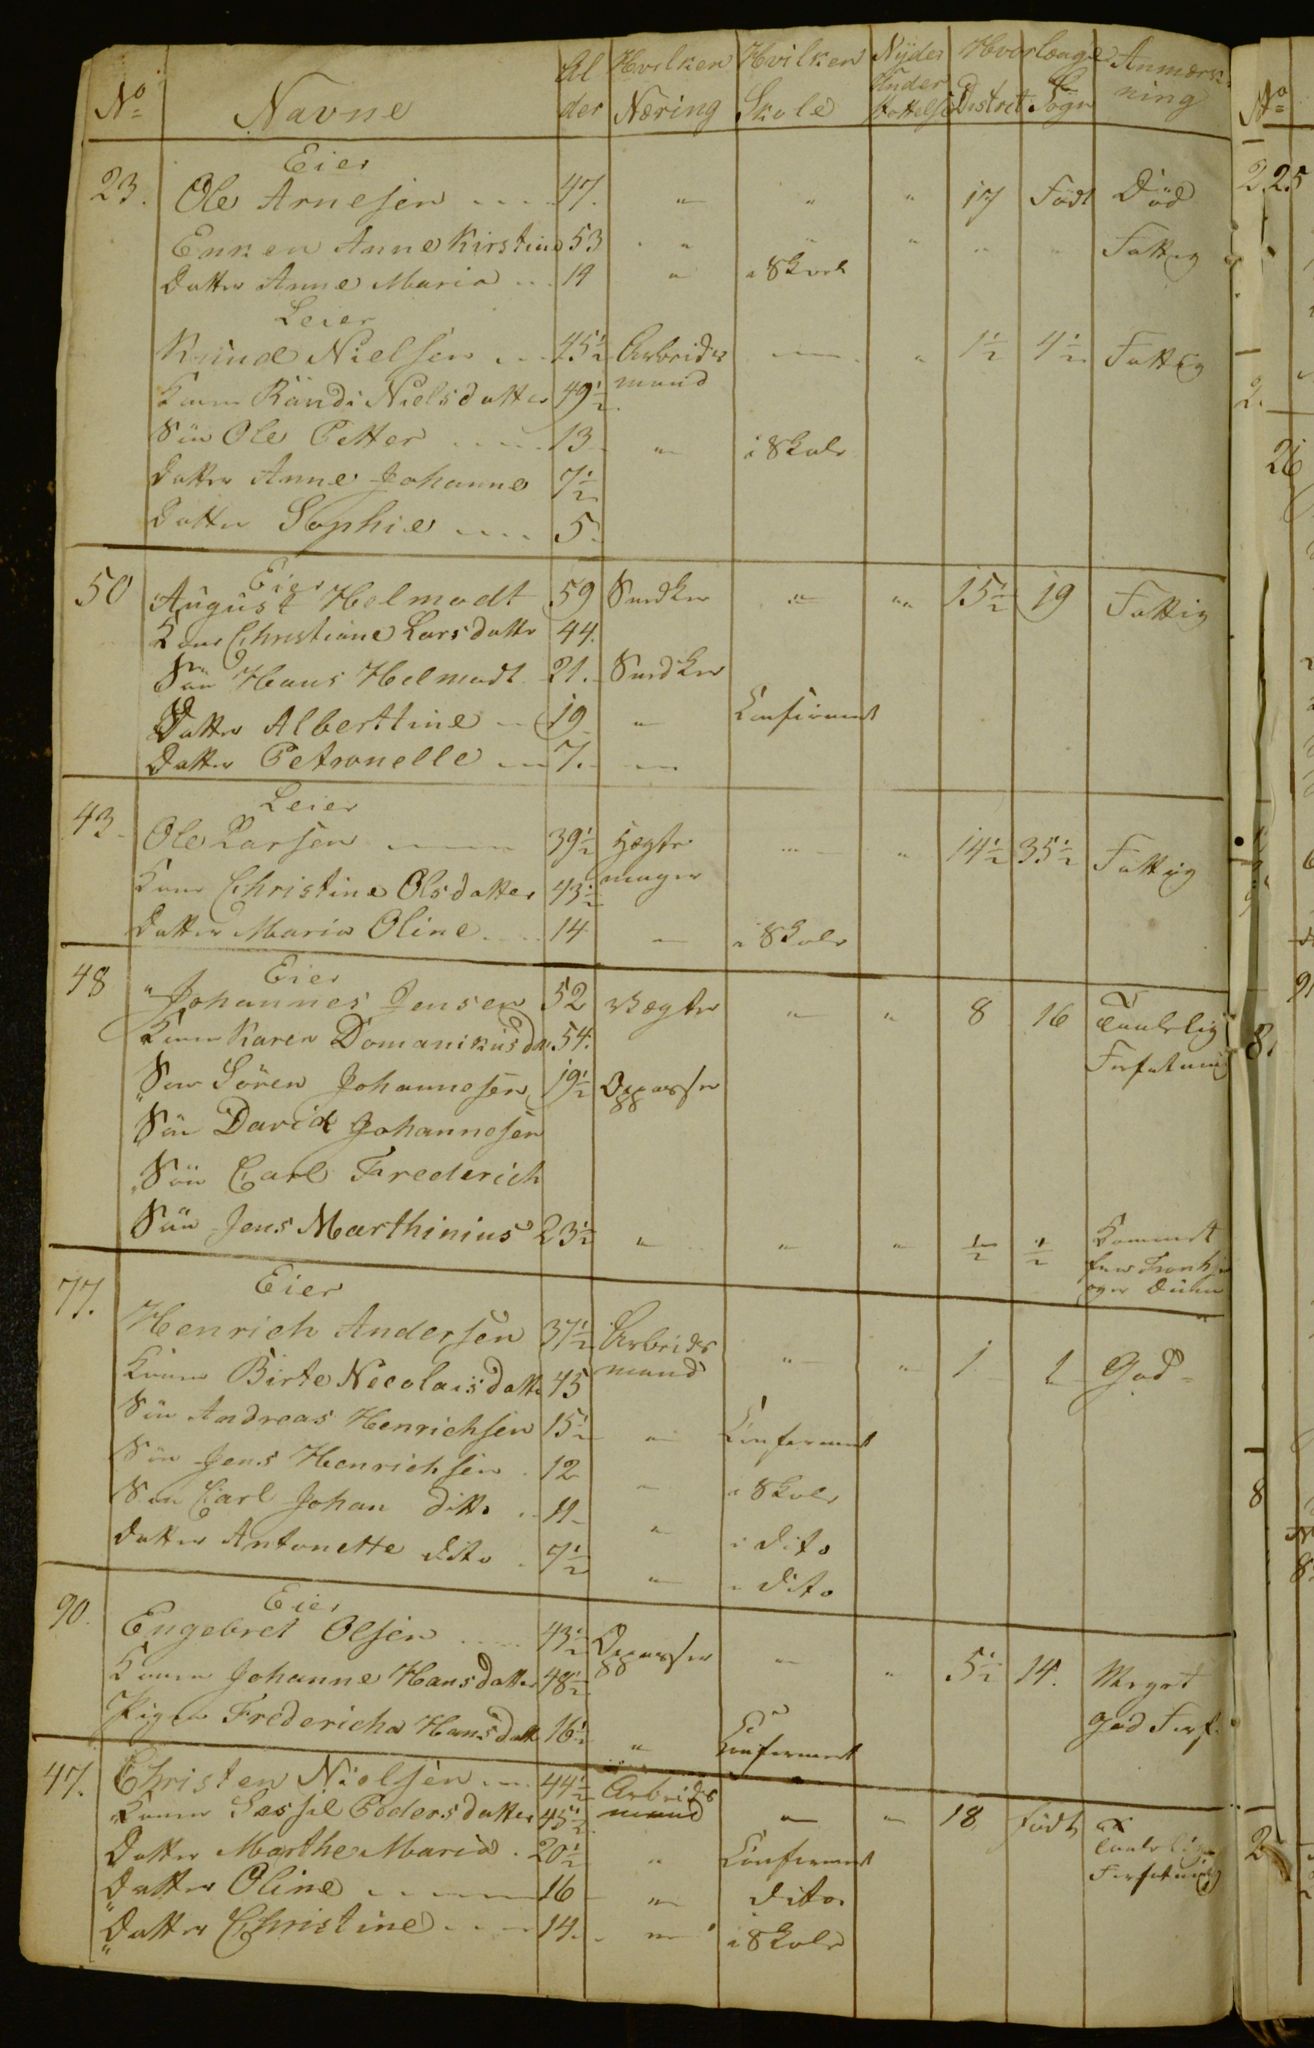 No Navne Alder Hvilken Næring Hvilken Skole Nyder Understøttelse Hvorlænge Distrct Sogn Anmærkning
Eier
23. Ole Arnesen .... 47. " " " 17 Født Död
Enken Anne Kirstine 53 " " " " " Fattig
Datter Anne Maria ... 14 " i Skole
Leier
Knud Nielsen ... 45½ Arbeids " 1½ 4½ Fattig
Kone Randi Nielsdatter 49½ mand
Sön Ole Petter .... 13 " i Skole
Datter Anne Johanne 7½
Datter Sophie .... 5.
Eier
50 August Helmodt 59 Snedker " " 15½ 19 Fattig
Kone Christiane Larsdattr 44.
Sön Hans Helmodt 21. Snedker
Datter Alberttine ... 19 " Confirmert
Datter Petronelle ... 7. "
Leier
43 Ole Larsen 39½ Hægte " " 14½ 35½ Fattig
Kone Christine Olsdatter 43½ mager
Datter Maria Oline 14 " i Skole
Eier
48 " Johannes Jensen 52 Vægter " " 8 16 Taalelig
Kone Karen Domanikusda 54. Forfatning
Sön Sören Johannesen 19½ Oppasser
Sön David Johannesen
Sön Carl Frederich
Sön Jens Marthinius 23½ " " " ½ ½ Kommet
fra
Eier
77. Henrich Andersen 37½ Arbeids " " 1 1 God
Konen Birte Necolaisdatt 45 mand
Sön Andreas Henrichsen 15½ " Confirmert
Sön Jens Henrichsen . 12 " i Skole
Sön Carl Johan ditto .. 11 " i dito
Datter Antonette dito . 7½ " i dito
Eier
90. Engebret Olsen .... 43½ Oppasser " " 5½ 14. Meget
Konen Johanne Hansdatter 48½ god Forf.
Pigen Fredericha Hansdatt 16½ " Confirmert
47. Christen Nielsen ... 44½ Arbeids " " 18 født Taalelig
Konen Sessel Pedersdatter 45½ mand Forfatning
Datter Marthe Maria . 20½ " Confirmert
Datter Oline 16 " dito.
" Datter Christine 14. " i Skole